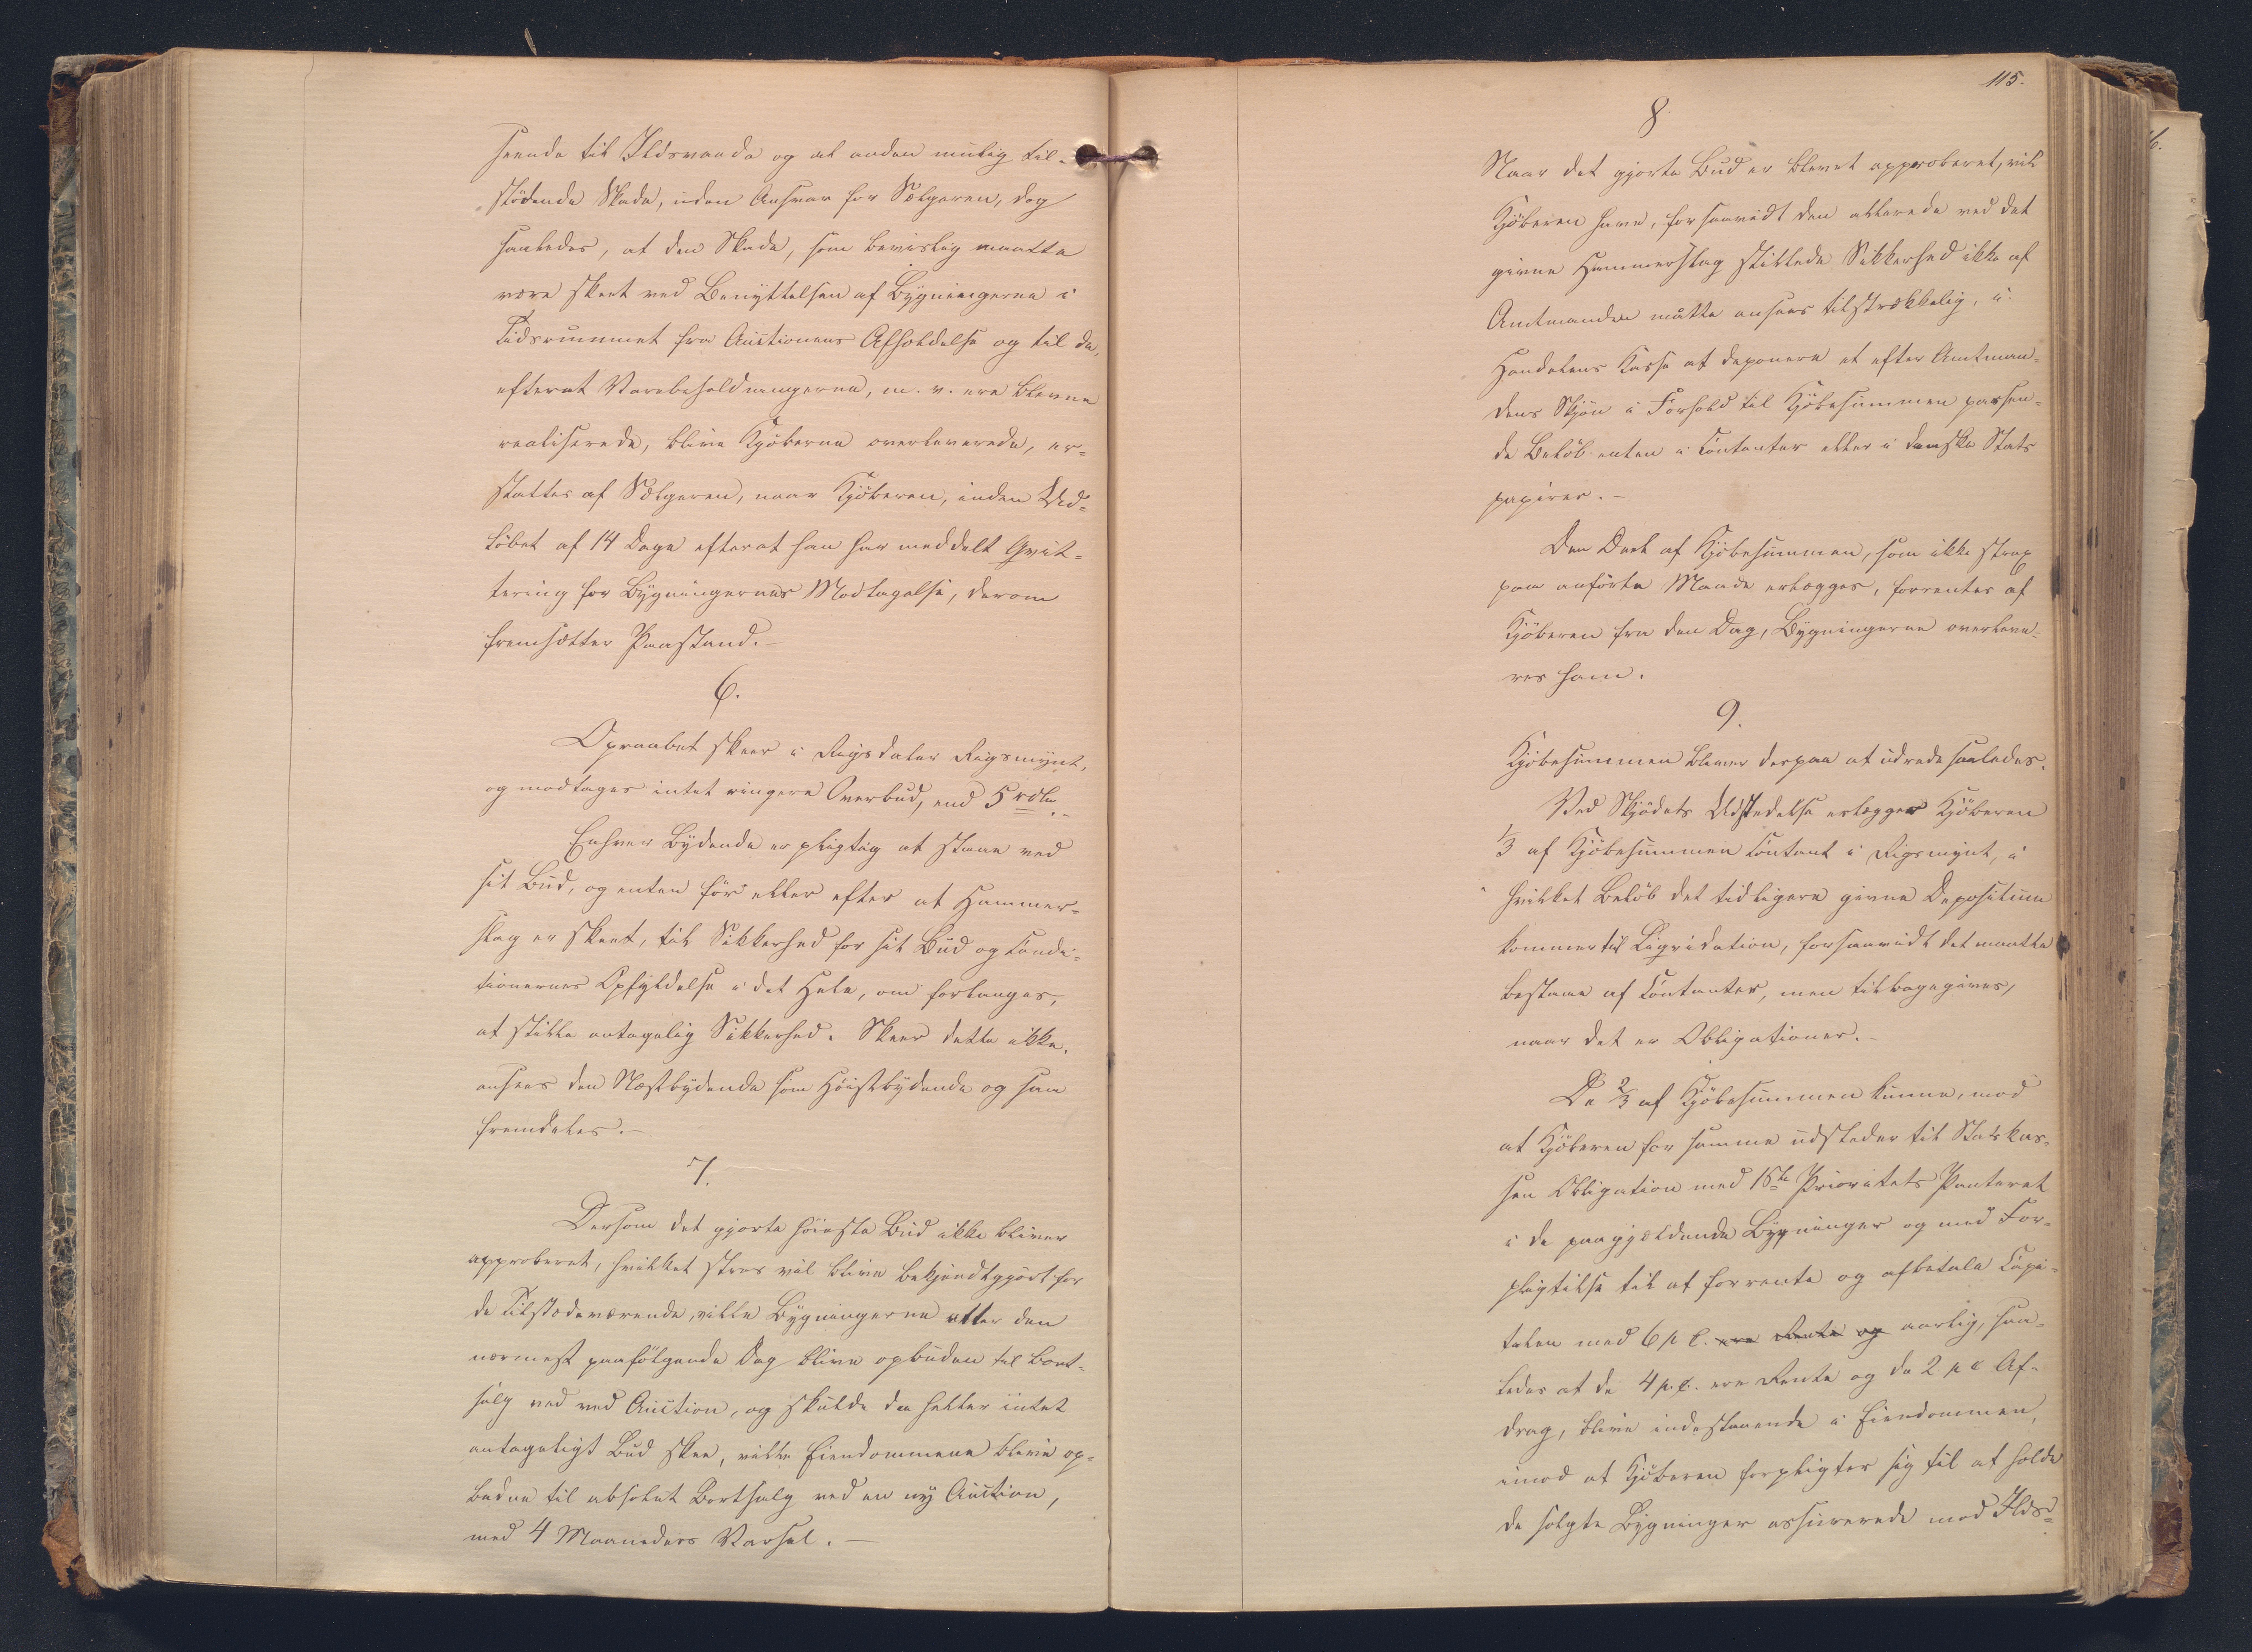 seende til Ildsvaade og al anden mulig til-
stödende Skade, uden Ansvar for Sælgeren, dog
saaledes, at den Skade, som beviislig maatte
være skeet ved Benyttelsen af Bygningerne i
Tidsrummet fra Auctionens Afholdelse og til de,
efterat Varebeholdningerne, m. v. ere blevne
realiserede, blive Kjöberne overleverede, er-
stattes af Sælgeren, naar Kjöberen, inden Ud-
löbet af 14 Dage efterat han har meddelt Qvit-
tering for Bygningernes Modtagelse, derom
fremsætter Paastand.-
6.
Opraabet skeer i Rigsdaler Rigsmynt,
og modtages intet ringere Overbud, end 5 rdlr.-
Enhver Bydende er pligtig at staae ved
sit Bud, og enten för eller efter at Hammer-
slag er skeet, til Sikkerhed for sit Bud og Condi-
tionernes Opfyldelse i det Hele, om forlanges,
at stille antagelig Sikkerhed. Skeer dette ikke,
ansees den Næstbydende som Höistbydende og saa
fremdeles.-
7.
Dersom det gjorte höieste Bud ikke bliver
approberet, hvilket strax vil blive bekjendtgjort for
de Tilstedeværende, ville Bygningerne atter den
nærmest paafölgende Dag blive opbuden til Bort-
salg ved ved Auction, og skulde da heller intet
antageligt Bud skee, ville Eiendommene blive op-
budne til absolut Bortsalg ved en ny Auction,
med 4 Maaneders Varsel.-
115.
8
Naar det gjorte Bud er blevet approberet, vil
Kjöberen have, forsaavidt den allerede ved det
givne Hammerslag stillede Sikkerhed ikke af
Amtmanden måtte ansees tilstrækkelig, i
Handelens Casse at deponere et efter Amtman-
dens Skjön i Forhold til Kjöbesummen passen-
de Belöb enten i Contanter eller i danske Stats
papirer.-
Den Deel af Kjöbesummen, som ikke strax
paa anförte Maade erlægges, forrentes af
Kjöberen fra den Dag, Bygningerne overleve-
res ham.
9.
Kjöbesummen bliver derpaa at udrede saaledes.
Ved Skjödets Udstedelse erlægger Kjöberen
1/3 af Kjöbesummen Contant i Rigsmynt, i
hvilket Belöb det tidligere givne Depositum
kommer til Liqvidation, forsaavidt det maatte
bestaae af Contanter, men tilbagegives,
naar det er Obligationer.-
De 2/3 af Kjöbesummen kunne, mod
at Kjöberen for samme udsteder til Statskas-
sen Obligation med 1ste Prioritets Panteret
i de paagjældende Bygninger og med For-
pligtelse til at forrente og afbetale Capi-
talen med 6 p C. ere Rente og aarlig, saa-
ledes at de 4 p. C. ere Rente og de 2 p C Af-
drag, blive indestaaende i Eiendommen,
imod at Kjöberen forpligter sig til at holde
de solgte Bygninger assurerede mod Ilds-